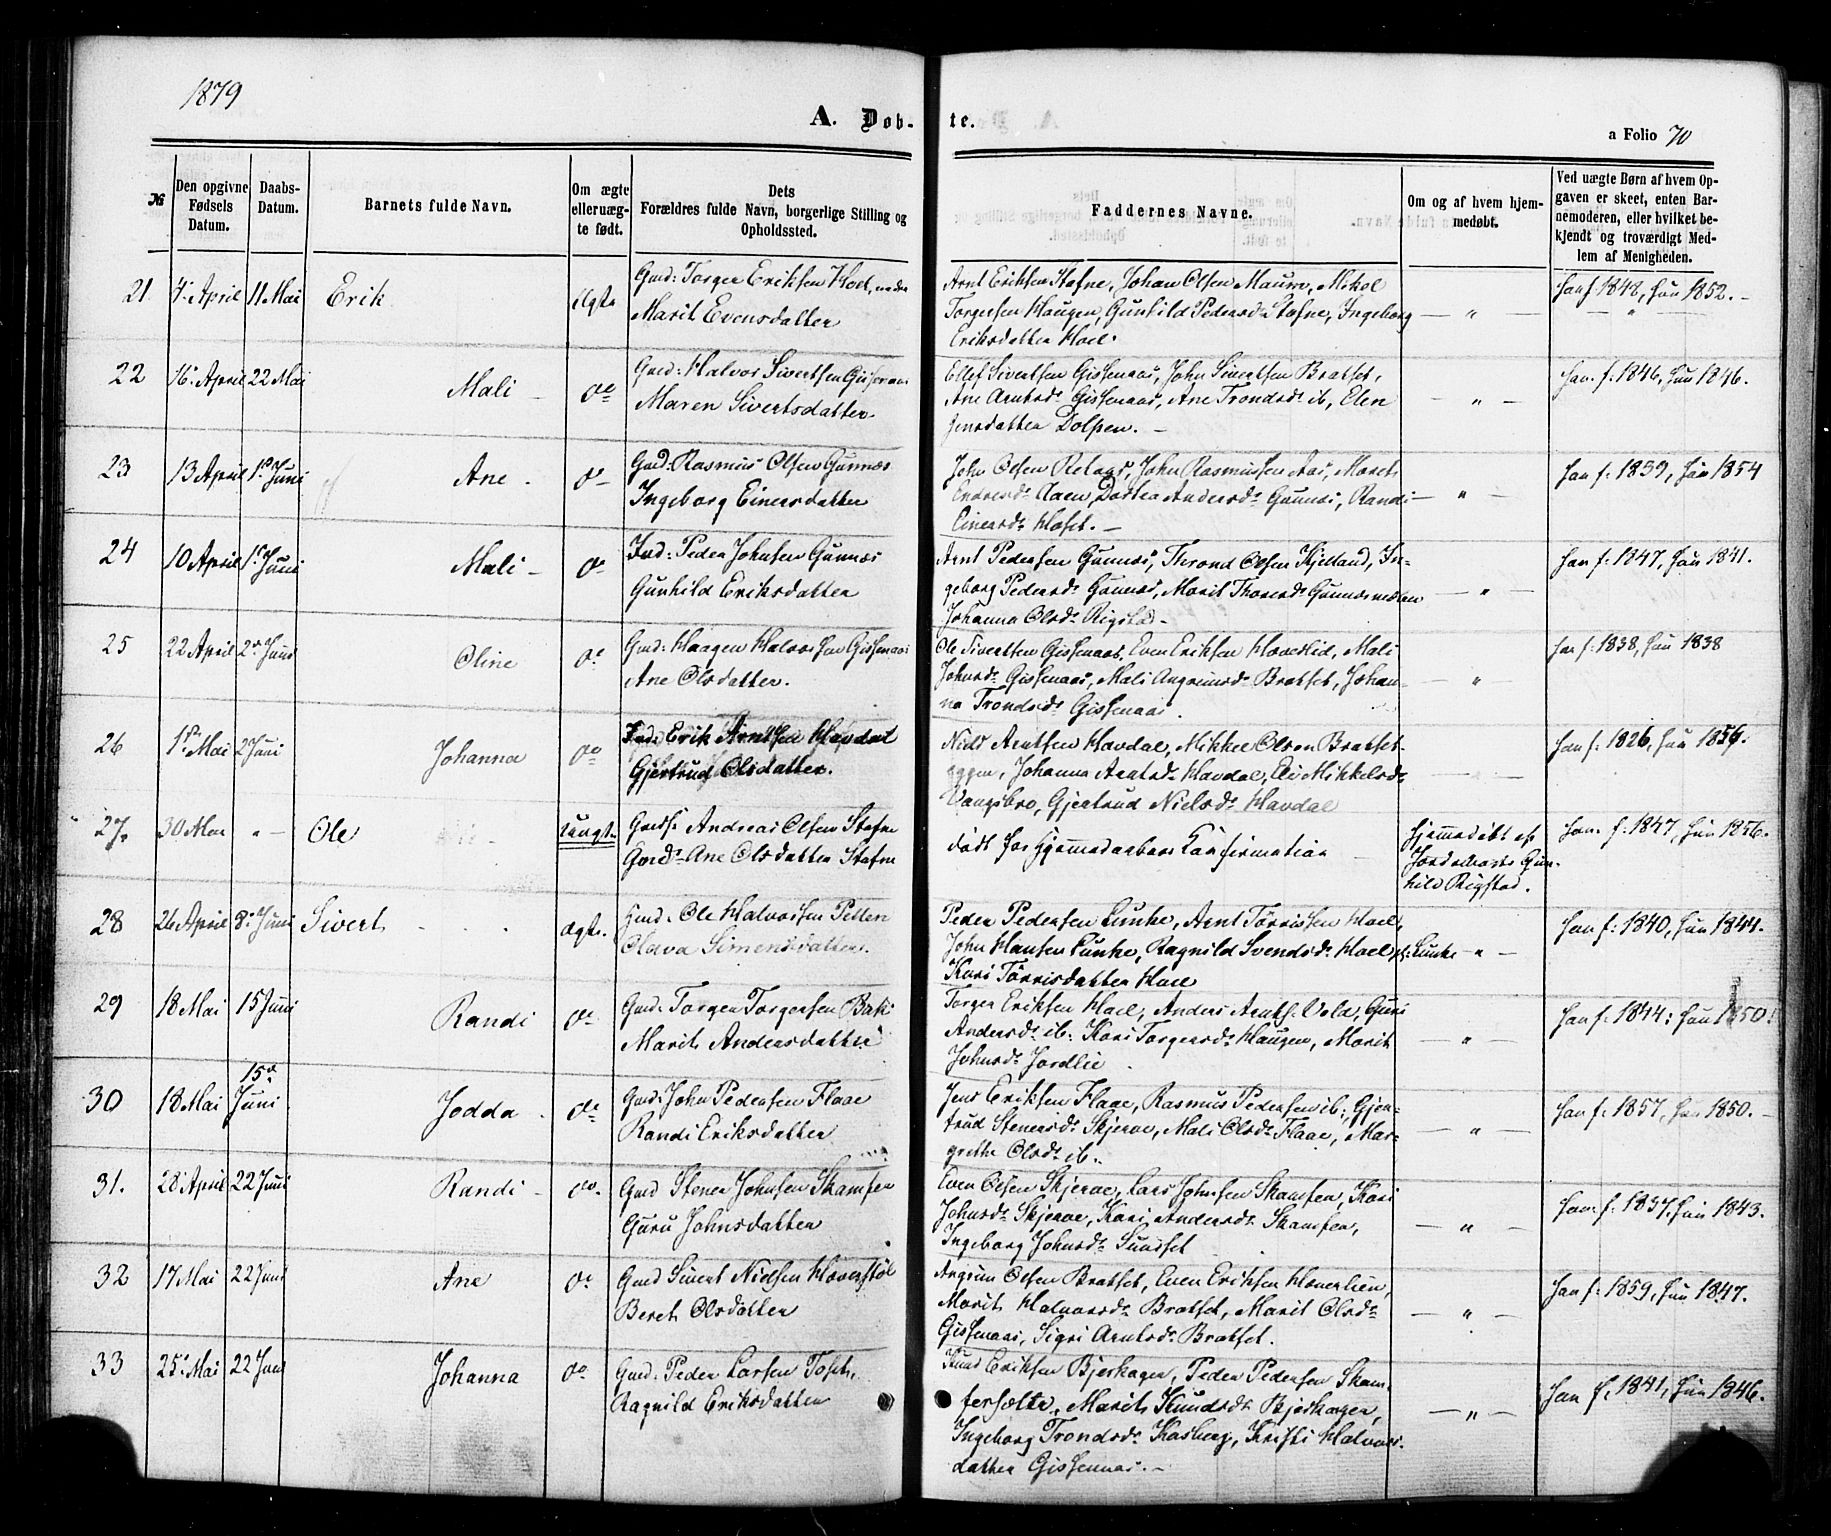 1879
A. Døb-
te.
a Folio 70
№
Den opgivne Fødsels Datum.
Daabs-Datum.
Barnets fulde Navn.
Om ægte elleruægte født.
Dets Forældres fulde Navn, borgerlige Stilling og Opholdssted.
Faddernes Navne.
Om og af hvem hjemmedøbt.
Ved uægte Børn af hvem Opgaven er skeet, enten Barnemoderen, eller hvilket bekjendt og troværdigt Medlem af Menigheden.
21 4 April 11 Mai Erik ægte Gmd: Torger Eriksen Hoel, nedre
Marit Evensdatter
Arnt Eriksen Stafne, Johan Olsen Maurn, Mikel
Torgersen Haugen, Gunhild Pedersd. Stafne, Ingeborg
Eriksdatter Hoel.
— " —
Han f. 1848, Hun 1852. -
22 16 April 22 Mai Mali - do Gmd: Halvor Sivertsen Gisenaas
Maren Sivertsdatter.
Ellef Sivertsen Gissenaas, John Sivertsen Bratset,
Ane Arntsd. Gissenaas, Ane Trondsd. ib, Elen
Jensdatter Dolpen. -
— " —
Han. f. 1846, Hun 1846.
23 13 April 1ste Juni Ane - do Gmd: Rasmus Olsen Gunnes
Ingeborg Einersdatter
John Olsen , John Rasmussen Aas, Marit
Endresd. Aaen, Dortea Andersd. Gunnes, Randi
Einersd. Hoset. -
— " —
Han f: 1839, Hun 1854
24 10 April 1ste Juni Mali - do Ind: Peder Johnsen Gunnes
Gunhild Eriksdatter
Arnt Pedersen Gunnes, Thrond Olsen Kjelland, In-
geborg Pedersd. Gunnes, Marit Thoresd. Gunnesmælen
Johanna Olsd. Rigstad -
— " —
Han f. 1847, Hun 1841.
25 22 April 2 Juni Oline do Gmd: Haagen Halvorsen Gissenaas
Ane Olsdatter.
Ole Sivertsen Gissenaas, Even Eriksen Haverlid, Mali
Johnsd. Gissenaas, Mali Angrimsd. Bratset, Johan-
na Trondsd. Gissenaas.
— " —
Han f. 1838, Hun 1838
26 1ste Mai 2 Juni Johanna do Ind: Erik Arntsen Havdal
Gjertrud Olsdatter.
Nils Arntsen Havdal, Mikkel Olsen Bratset-
eggen, Johanna Arntsd. Havdal, Eli Mikkelsd.
Vangsbro, Gjertrud Nielsd. Havdal
Han f: 1826, Hun 1856.
27. 30 Mai " — Ole uægte. Gmds. Andreas Olsen Stafne
Gmd. Ane Olsdatter Stafne
død før Hjemmedaabens Konfirmation -
Hjemmedøbt af
Jordemoder Gun-
hild Rigstad.
Han. f. 1847, Hun 1856.
28 26 April 8. Juni Sivert . . . ægte. Gmd. Ole Halvorsen Pellen
Olava Simensdatter.
Peder Pedersen Lunke, Arnt Tørrissen Hoel,
John Hansen Lunke, Ragnild Svendsd. Hoel pl: Lunke
Kari Tørrisdatter Hoel
" —
Han f: 1840, Hun 1844.
29 18 Mai 15 Juni Randi do Gmd: Torger Torgersen Bak
Marit Andersdatter
Torger Eriksen Hoel, Anders Arntsen Vold, Guri
Andersd. ib. Kari Torgersd. Haugen, Marit
Johnsd. Jordlie.
— " —
Han f. 1844: Hun 1850!
30 18 Mai 15de Juni Jodda - do Gmd: John Pedersen Flaae
Randi Eriksdatter
Jens Eriksen Flaae, Rasmus Pedersen ib., Gjer-
trud Stenersd. Skjerve, Mali Olsd. Flaae, Mar-
grethe Olsd. ib.
— " —
Han f: 1857, Hun 1850. -
31. 28 April 22 Juni Randi - do. Gmd Stener Johnsen Skamfer
Guru Johnsdatter
Even Olsen Skjerve, Lars Johnsen Skamfer, Kari
Johnsd. Skjerve, Kari Andersd. Skamfer,
Ingeborg Johnsd. Sundset
— " —
Han. f. 1837, Hun 1843.
32 17 Mai 22 Juni Ane do Gmd Sivert Nielsen Haverstøl
Beret Olsdatter
Angrim Olsen Bratset, Even Eriksen Haverlien,
Marit Halvorsd. Bratset, Marit Olsd.
Gissenaas, Sigri Arntsd. Bratset.
— " —
Han f: 1859, Hun 1847.
33 25. Mai 22 Juni Johanna do Gmd: Peder Larsen Toset,
Ragnild Eriksdatter
Knud Eriksen Bjerkager, Peder Pedersen Skam-
fersætre, Marit Knudsd. Bjerkager,
Ingeborg Trondsd. Kasberg, Kristi Halvors-
datter Gissenaas. -
— " —
Han f. 1841, Hun 1846.